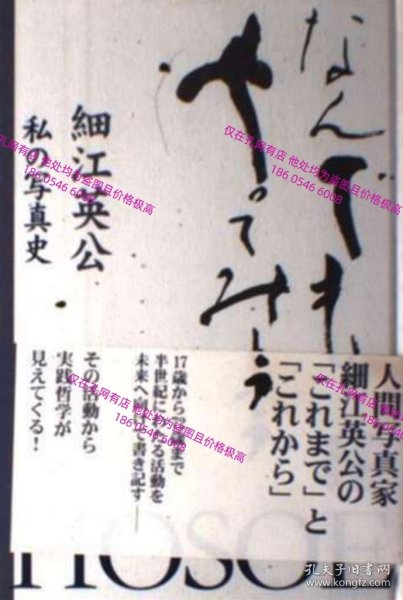 なんでも
やってみよう
細江英公
私の写真史
人間写真家
細江英公の
「これまで」と
「これから」
半世紀にわたる活動を
未来へ向けて書き記す——
その活動から
実践哲学が
見えてくる!
HOSOE
仅在孔网有店 他处均为盗图且价格极高
186 0546 6008
仅在孔网有店 他处均为盗图且价格极高
186 0546 6008
仅在孔网有店 他处均为盗图且价格极高
186 0546 6008
仅在孔网有店 他处均为盗图且价格极高
186 0546 6008
孔夫子旧书网
www.kongfz.com